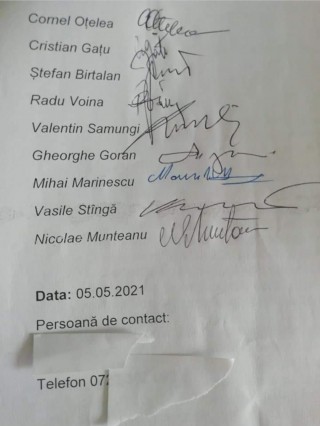 Cornel Oțelea
Cristian Gațu
Ștefan Birtalan
Radu Voina
Valentin Samungi
Gheorghe Goran
Mihai Marinescu
Vasile Stîngă
Nicolae Munteanu
Data: 05.05.2021
Persoană de contact:
Telefon 07